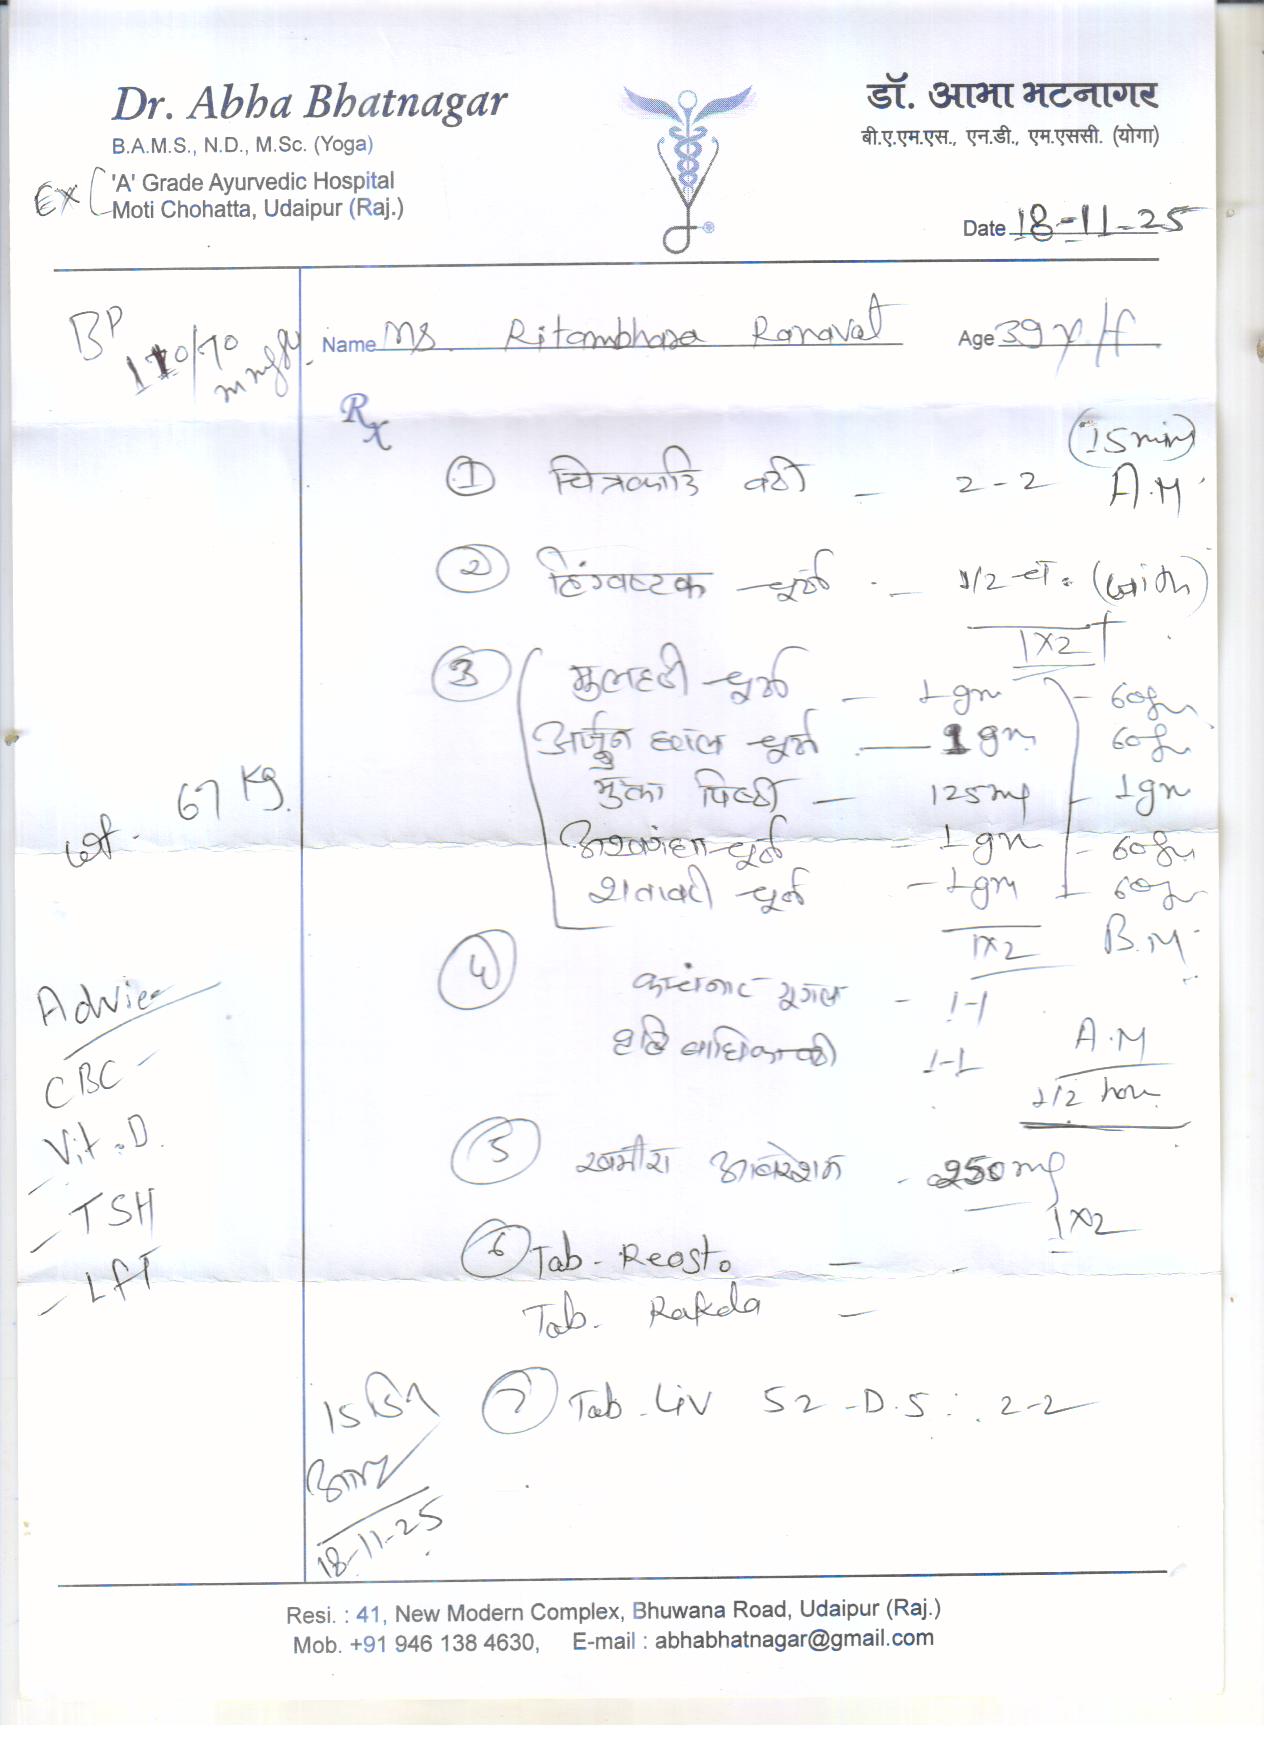 Dr. Abha Bhatnagar
B.A.M.S., N.D., M.Sc. (Yoga)
Ex 'A' Grade Ayurvedic Hospital
Moti Chohatta, Udaipur (Raj.)
डॉ. आभा भटनागर
बी.ए.एम.एस., एन.डी., एम.एससी. (योगा)
Date 18-11-25
BP
110/70
mmHg
Name Ms. Ritambhara Ranavat Age 39 y/f
Rx
(15 min)
① चित्रकादि वटी - 2-2 A.M.
② हिंग्वष्टक चूर्ण - 1/2 च.
1x2
③ मुलहठी चूर्ण - 1gm - 60gm
अर्जुन छाल चूर्ण - 1gm 60gm
मुक्ता पिष्टी - 125mg - 1gm
अश्वगंधा चूर्ण - 1gm - 60gm
शतावरी चूर्ण - 1gm - 60gm
1x2 B.M.
wt - 67 Kg.
④ कांचनार गूगल - 1-1
वृद्धि वाधिका वटी 1-1 A.M
1/2 hour
⑤ खमीरा आबरेशम - 250mg
1x2
⑥ Tab - Reosto -
Tab. -
⑦ Tab - Liv 52 - D.S. 2-2
Advice
CBC -
Vit. D.
- TSH
- LFT
15 दिन
18-11-25
Resi. : 41, New Modern Complex, Bhuwana Road, Udaipur (Raj.)
Mob. +91 946 138 4630, E-mail : abhabhatnagar@gmail.com